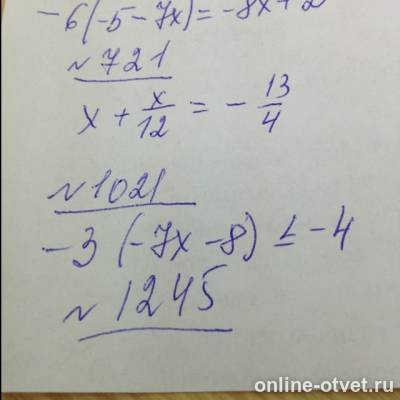 -6(-5-7x)=-8x+2
№721
x + x/12 = - 13/4
№1021
-3(-7x-8) ≤ -4
№1245
online-otvet.ru